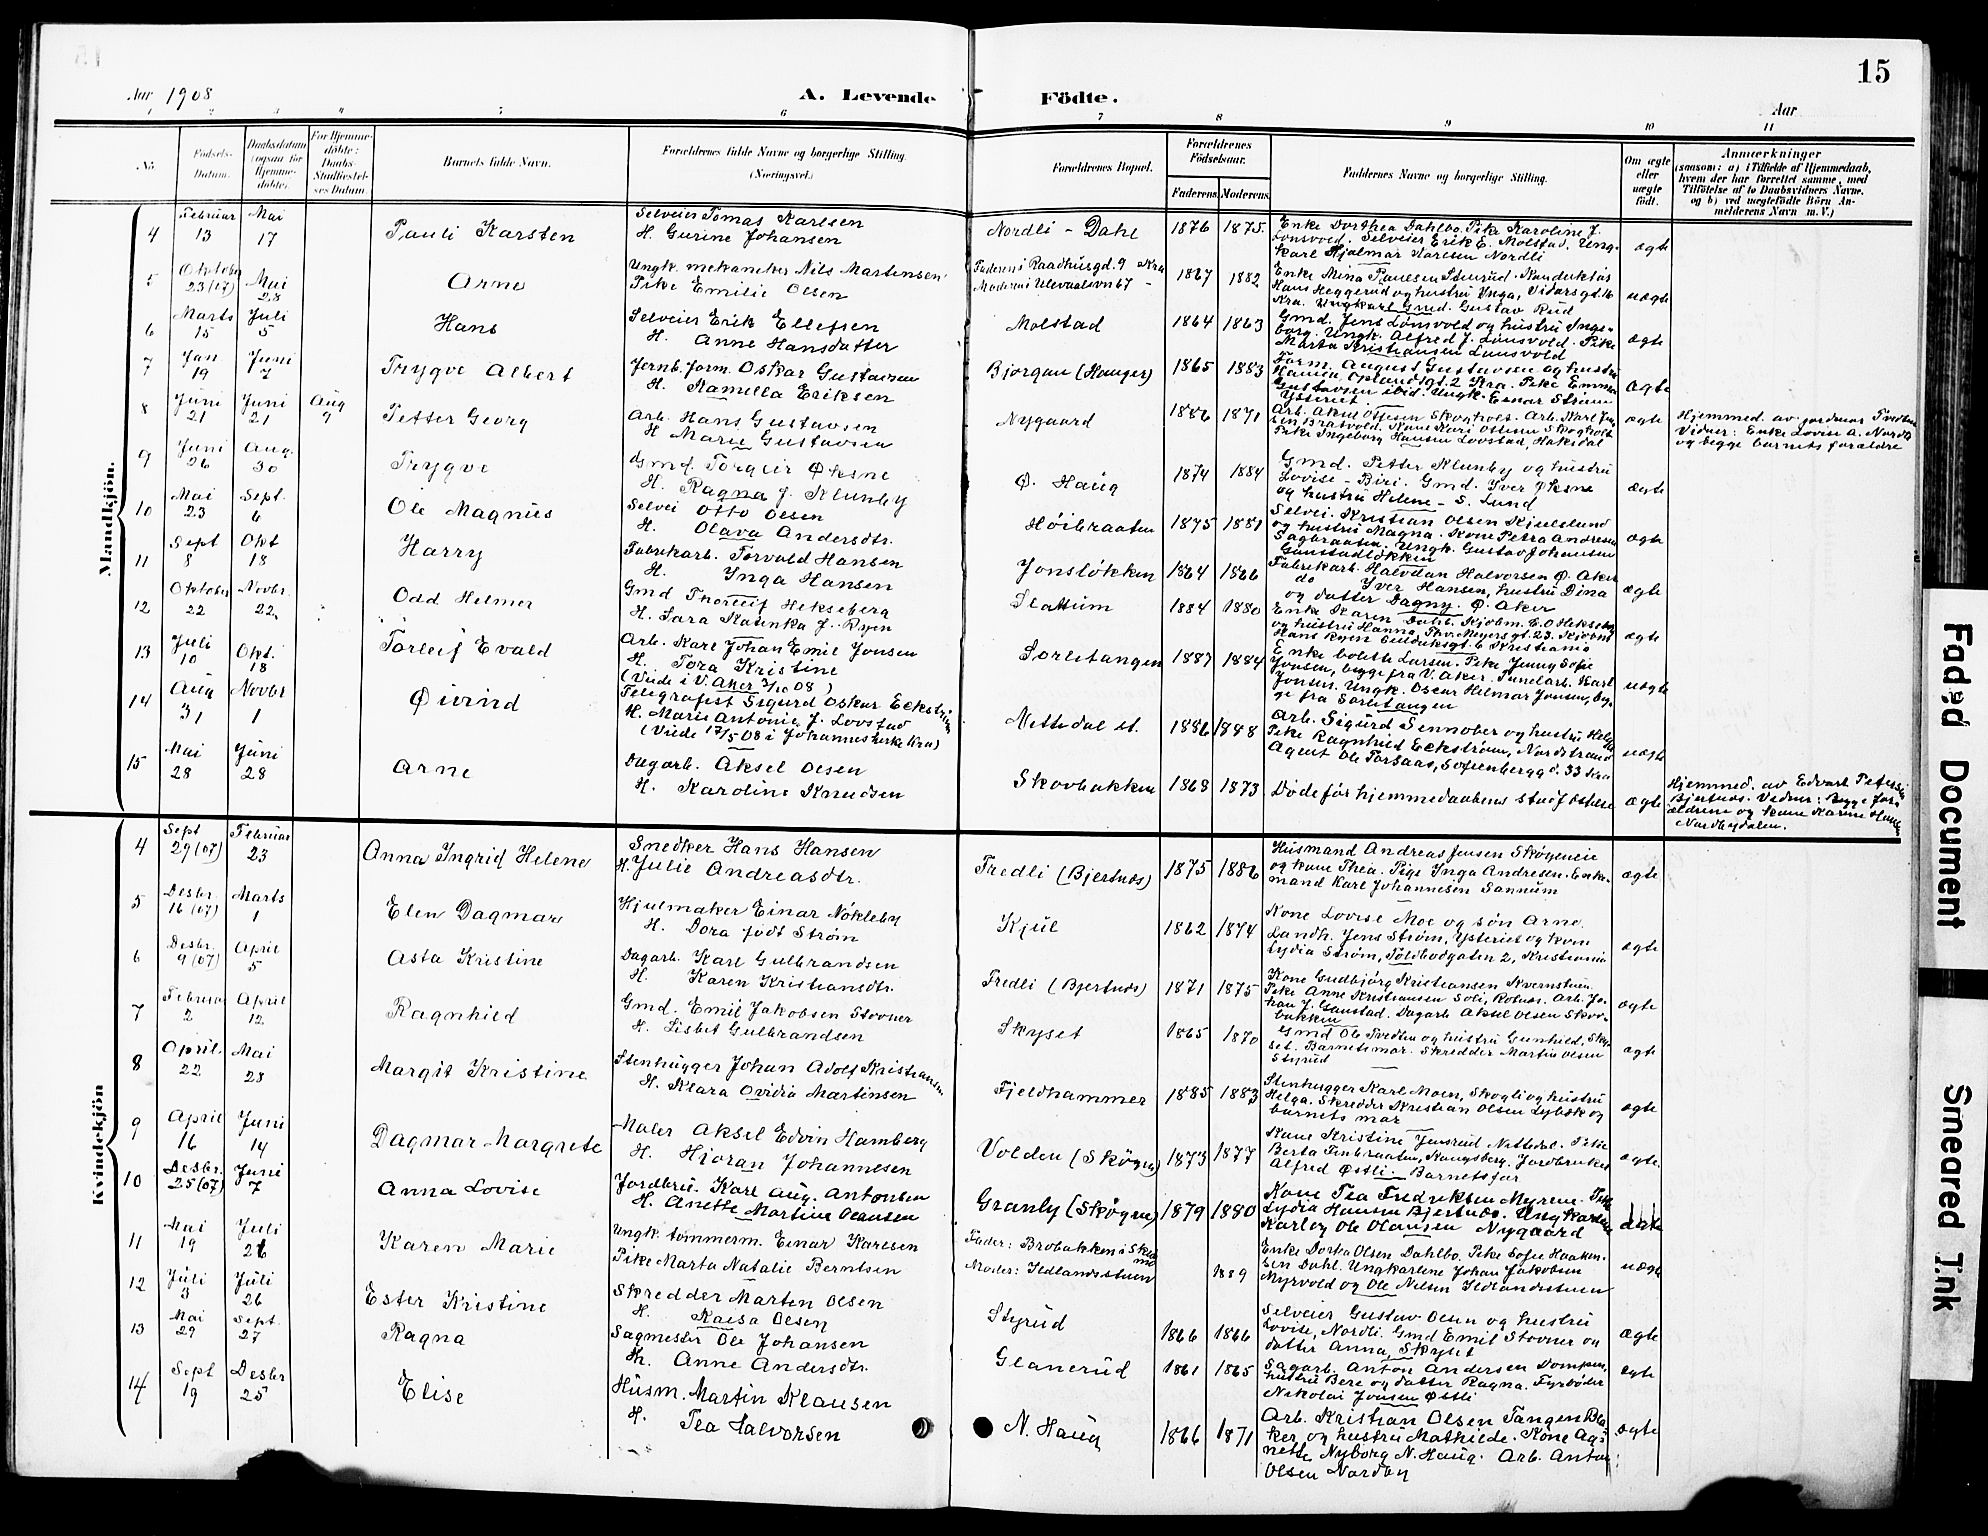 15
Aar 1908
A. Levende Födte.
Aar
1 2 3 4 5 6 7 8 9 10 11
No.
Födsels-Datum.
Daabsdatum (ogsaa for Hjemme-döbte).
For Hjemme-döbte: Daabs-Stadfæstel-ses Datum.
Barnets fulde Navn.
Forældrenes fulde Navne og borgerlige Stilling. (Næringsvei.)
Forældrenes Bopæl.
Forældrenes Födselsaar.
Faderens Moderens
Faddernes Navne og borgerlige Stilling.
Om ægte eller uægte födt.
Anmærkninger
(saasom: a) i Tilfælde af Hjemmedaab,
hvem der har forrettet samme, med
Tilföielse af to Daabsvidners Navne,
og b) ved uægtefödte Börn An-
melderens Navn m. V.)
Mandkjön.
4 Februar 13 Mai 17 Pauli Karsten
Selveier Tomas Karlsen
H. Gurine Johansen
Nordli - Dahl 1876 1875
Enke Dorthea Dahlbo. Pike Karoline J.
Lønsvold. Selveier Erik E. Molstad. Ung-
karl Hjalmar Karlsen Nordli
ægte
5 Oktober 23 (07) Mai 28 Arne
Ungk. mekaniker Nils Martinsen
Pike Emilie Olsen
Faderens Raadhusgd. 9 Kra
Moderens Ulevaalsvn 67 -
1867 1882
Enke Mina Paulsen Stuerud. Konduktør
Hans Heggerud og hustru Inga, Vidarsgt. 16
Kra. Ungkarl Gmd. Gustav Rud
uægte
6 Marts 15 Juli 5 Hans
Selveier Erik Ellefsen
H. Anne Hansdatter
Molstad 1864 1863
Gmd. Jens Lønsvold og hustru Inge-
borg. Ungk. Alfred J. Lønsvold. Pike
Marta Kristiansen Lønsvold
ægte
7 Jan 19 Juni 7 Trygve Albert
Jernb. form. Oskar Gustavsen
H. Kamilla Eriksen
Bjørgan (Hauger) 1865 1883
Form. August Gustavsen og hustru
Hanna, Oplandsgt. 2 Kra. Pike Emma
Gustavsen ibid. Ungk. Einar Strøm
Ysteriet
ægte
8 Juni 21 Juni 21 Aug 9 Petter Georg
Arb. Hans Gustavsen
H Marie Gustavsen
Nygaard 1886 1871
Arb. Aksel Ottesen Skogholt. Arb. Karl Jen
sen Bratvold. Kone Kari Ottesen Skogholt
Pike Ingeborg Hansen Lovstad, Hakedal
ægte
Hjemmed. av jordmor Tredten
Vidner: Enke Lovise A. Nordli
og begge barnets forældre
9 Juni 26 Aug. 30 Trygve
Gmd. Torgeir Øksne
H. Ragna J. Klunby
Ø. Haug 1874 1884
Gmd. Petter Klunby og hustru
Lovise - Biri. Gmd. Yver Øksne
og hustru Helene - S. Lund
ægte
10 Mai 23 Sept. 6 Ole Magnus
Selvei Otto Olsen
H. Olava Andersdtr.
Høibraaten 1875 1881
Selvei. Kristian Olsen Kjulslund
og hustru Magna. Kone Petra Andresen
Sagbraaten. Ungk. Gustav Johansen
Gaustadløkken
ægte
11 Sept 8 Okt 18 Harry
Fabrikarb. Torvald Hansen
H. Ynga Hansen
Jonsløkken 1864 1866
Fabrikarb. Halvdan Halvorsen Ø. Aker
do Yver Hansen, hustru Dina
og datter Dagny. Ø. Aker
ægte
12 Oktober 22 Novbr. 22 Odd Helmer
Gmd Thorleif Hekseberg
H. Sara Katinka J. Ryen
Slattum 1884 1880
Enke Karen Dahl. Kjøbm. E. O Hekseberg
og hustru Hanna, Thv. Meyersgt. 23. Kjøbm
Hans Ryen Kristiania
ægte
13 Juli 10 Okt. 18 Torleif Evald
Arb. Karl Johan Emil Jonsen
H. Tora Kristine
(Viede i V. Aker 3/10 08)
Sørlitangen 1887 1884
Enke bolette Larsen. Pike Jenny Sofie
Jonsen, begge fra V. Aker. Tunelarb. Karl
Jonsen. Ungk. Oscar Helmar Jonsen, beg-
ge fra Sørlitangen
uægte
14 Aug 31 Novbr 1 Øivind
Telegrafist Sigurd Oskar Eckstrøm
H. Marie Antonie J. Lovstad
(Viede 17/5 08 i Johanneskirke Kra)
Nittedal st. 1886 1888
Arb. Sigurd Sennober og hustru Helga
Pike Ragnhild Eckstrøm, Nordstrand
Agent Ole Torsaas, Sofienberggd. 33 Kra
uægte
15 Mai 28 Juni 28 Arne
Dagarb. Aksel Olsen
H. Karoline Knudsen
Skovbakken 1869 1873
Døde før hjemmedaabens stadfæstelse
ægte
Hjemmed. av Edvart Petersen
Bjertnæs. Vidner: Begge for-
ældrene og kone Karine Hansen
Nordbydalen.
Kvindekjön
4 Sept 29 (07) Februar 23 Anna Ingrid Helene
Snedker Hans Hansen
H. Julie Andreasdtr.
Fredli (Bjertnæs) 1875 1886
Husmand Andreas Jensen Skøyeneie
og kone Thea. Pige Inga Andresen. Enke-
mand Karl Johannesen Sannum
ægte
5 Desbr. 16 (07) Marts 1 Elen Dagmar
Hjulmaker Einar Nøkleby
H. Dora født Strøm
Kjul 1862 1874
Kone Lovise Moe og søn Arne.
Landh. Jens Strøm, Ysteriet og kone
Lydia Strøm, Toldbodgaten 2, Kristiania
ægte
6 Desbr. 9 (07) April 5 Asta Kristine
Dagarb. Karl Gulbrandsen
H. Karen Kristiansdtr.
Fredli (Bjertnæs) 1871 1875
Kone Gudbjørg Kristiansen Kvernstuen.
Pike Anne Kristiansen Soli, Rotnæs. Arb. Jo-
han J. Gaustad. Dagarb Aksel Olsen Skov-
bakken
ægte
7 Februar 2 April 12 Ragnhild
Gmd. Emil Jakobsen Stovner
H. Lisbet Gulbrandsen
Skyset 1865 1870
Gmd Ole Tredten og hustru Gunhild, Sky-
set. Barnets mor. Skredder Martin Olsen
Styrud
ægte
8 April. 22 Mai 28 Margit Kristine
Stenhugger Johan Adolf Kristiansen
H. Klara Ovidia Martinsen
Fjeldhammer 1885 1883
Stenhugger Karl Moen, Skogli og hustru
Helga. Skredder Kristian Olsen Lybæk og
barnets mor
ægte
9 April 16 Juni 14 Dagmar Margrete
Maler Aksel Edvin Hamberg
H. Hjoran Johannesen
Volden (Skøyen) 1873 1877
Kone Kristine Jensrud Nittedal. Pike
Berta Finbraaten, Kongsberg. Jordbruker
Alfred Østli. Barnets far
ægte.
10 Desbr. 25 (07) Juni 7 Anna Lovise
Jordbru. Karl Aug. Antonsen
H. Anette Martine Olausen
Granly (Skøyen) 1879 1880
Kone Tea Fredriksen Myrene. Pike
Lydia Hansen Bjertnæs. Ungkarlene
Karl og Ole Olausen Nygaard
ægte
11 Mai 19 Juli 26 Karen Marie
Ungk. tømmerm. Einar Karlsen
Pike Marta Natalie Berntsen
Fader: Brobakken i Skedsmo
Moder: Ildlandsstuen
1889
Enke Dortea Olsen Dahlbo. Pike Sofie Haaken-
sen Dahl. Ungkarlene Johan Jakobsen
Myrvold og Ole Nilsen Ildlandsstuen
uægte
12 Juli 3 Juli 26 Ester Kristine
Skredder Marten Olsen
H. Kaisa Olsen
Styrud 1866 1866
Selveier Gustav Olsen og hustru
Lovise, Nordli. Gmd Emil Stovner og
datter Anna, Skyset
ægte
13 Mai 29 Sept. 27 Ragna
Sagmester Ole Johansen
H. Anne Andersdtr.
Glanerud 1861 1865
Sagarb. Anton Andersen Dompen,
hustru Bere og datter Ragna. Fyrbøter
Nikolai Jonsen Østli
ægte
14 Sept 19 Desbr 25 Elise
Husm. Martin Klausen
H. Tea Halvorsen
N. Haug 1866 1871
Arb. Kristian Olsen Tangen Bla-
ker og hustru Mathilde. Kone Ag-
nette Nyborg N. Haug. Arb. Anton
Olsen Nordby
ægte
Faded Document
Smeared Ink